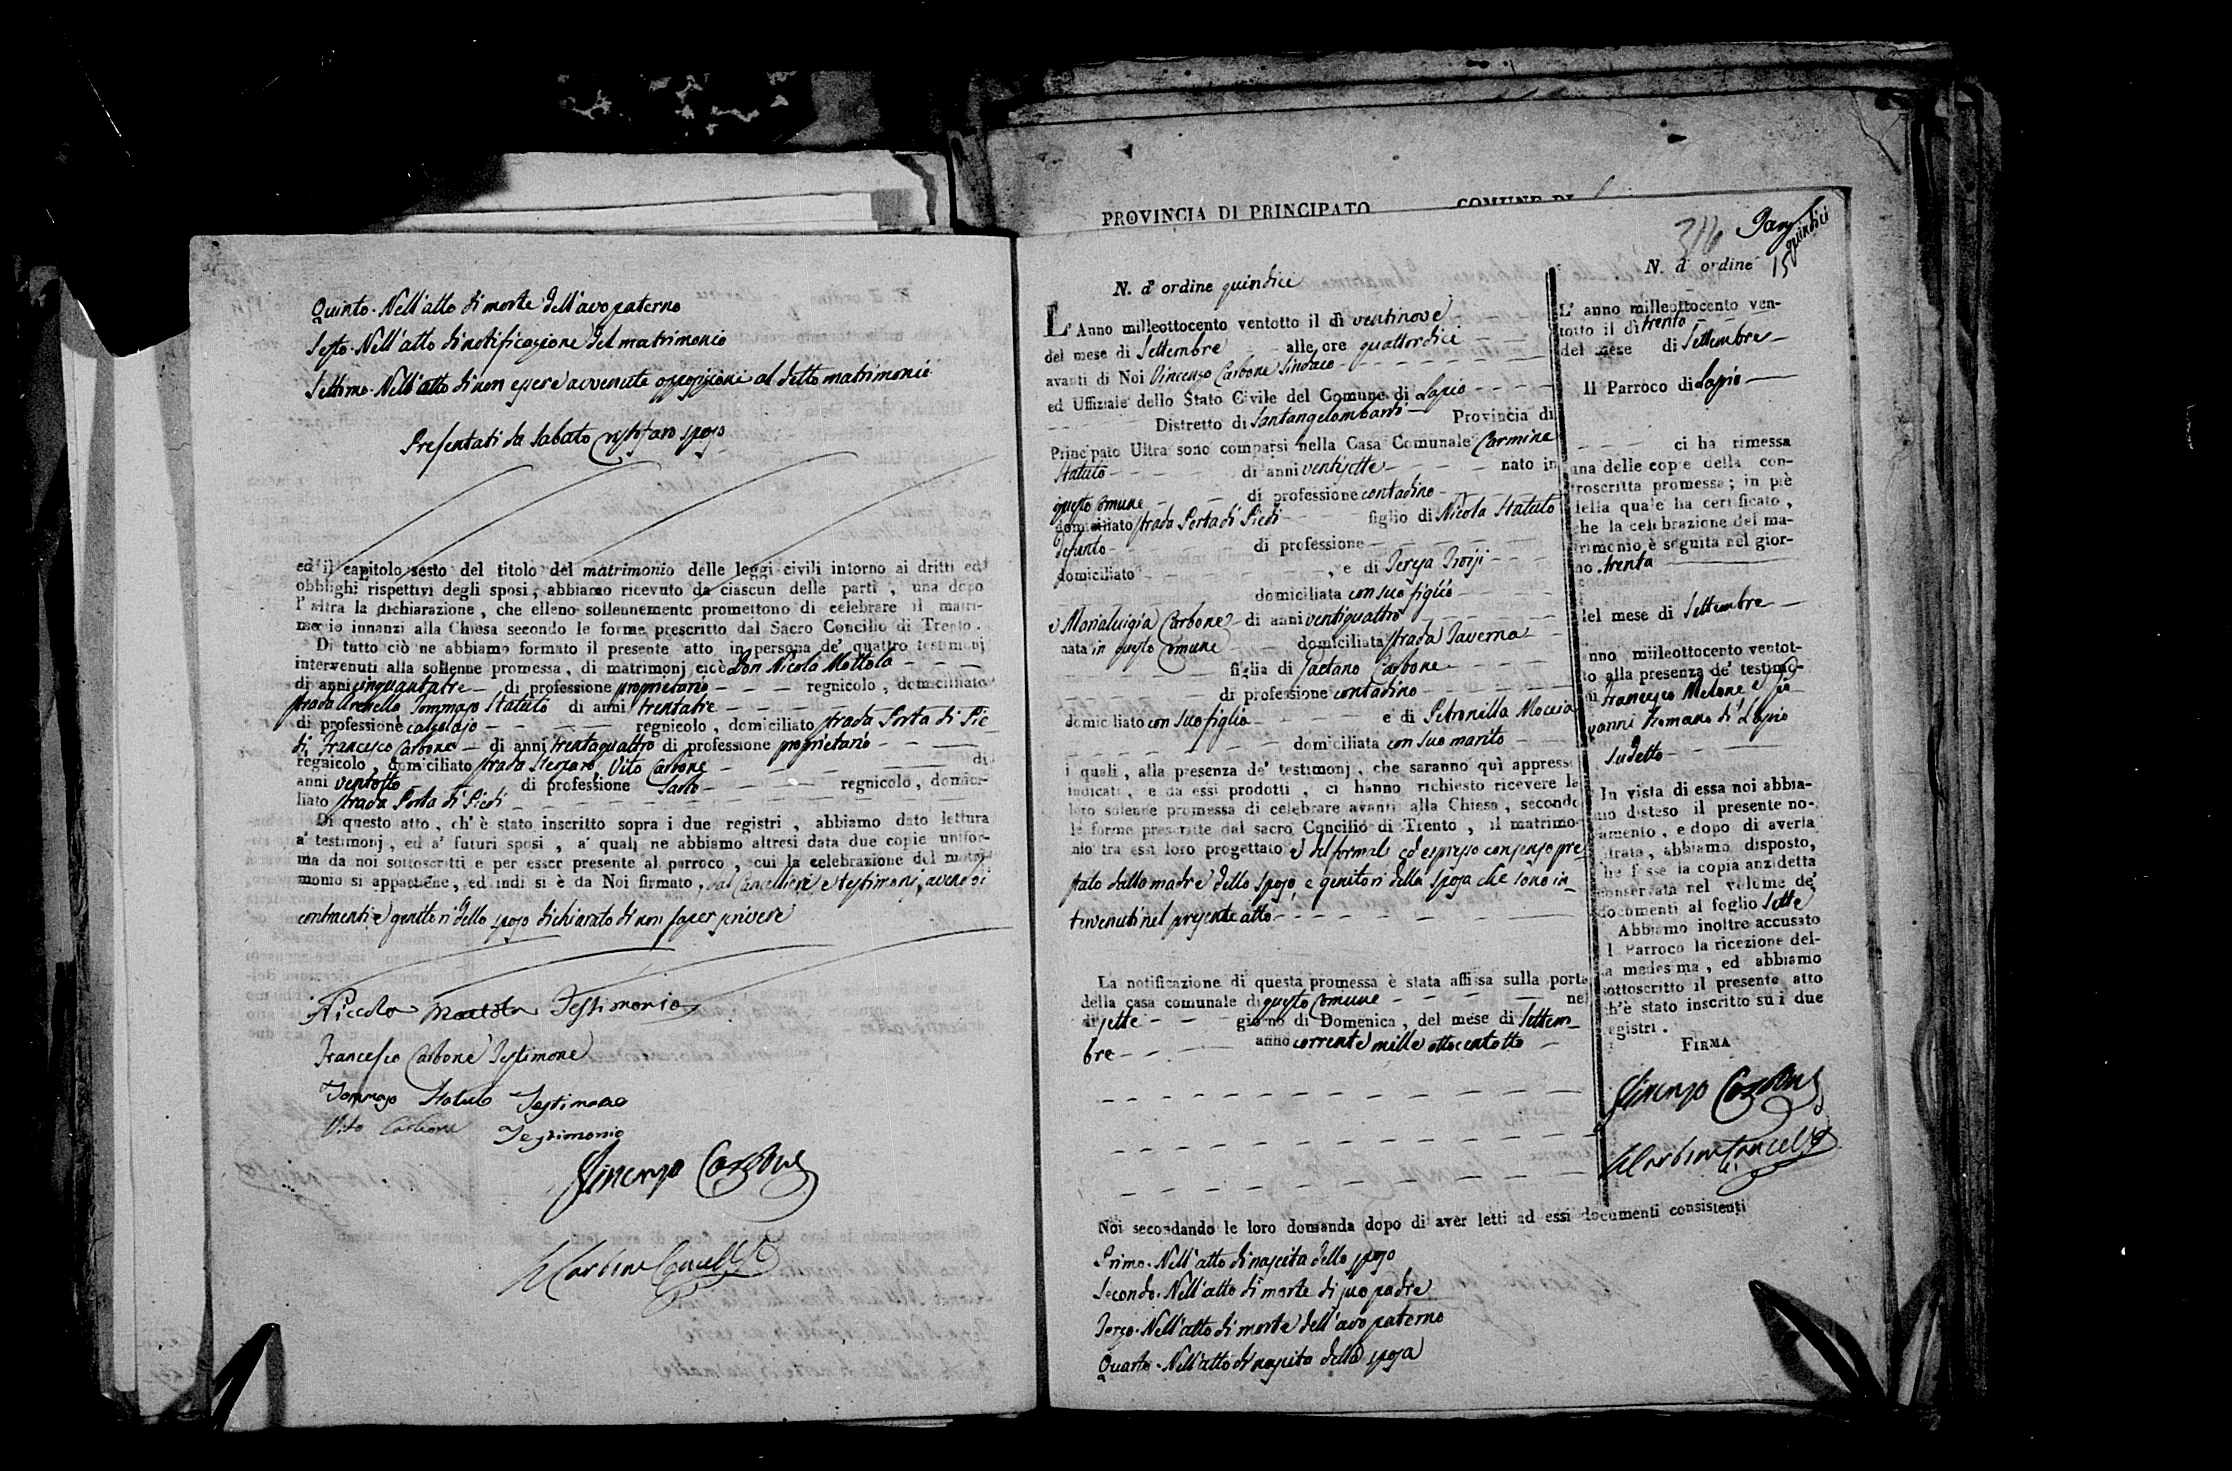 Quinto. Nell'atto di morte dell'avo paterno
Sesto. Nell'atto di notificazione del matrimonio
Settimo. Nell'atto di non essere avvenute opposizioni al detto matrimonio
Presentati da Sabato sposo
ed il capitolo sesto del titolo del matrimonio delle leggi civili intorno ai dritti ed
obblighi rispettivi degli sposi, abbiamo ricevuto da ciascun delle parti, una dopo
l'altra la dichiarazione, che elleno sollennemente promettono di celebrare il matri-
monio innanzi alla Chiesa secondo le forme prescritto dal Sacro Concilio di Trento.
Di tutto ciò ne abbiamo formato il presente atto in persona de' quattro testimonj
intervenuti alla sollenne promessa, di matrimonj cioè Don Nicola Mottola
di anni cinquantatre di professione proprietario regnicolo, domiciliato
strada Tommaso Statuto di anni trentatre
di professione calzolajo regnicolo, domiciliato strada Porta di Pie
di, Francesco Carbone di anni trentaquattro di professione proprietario
regnicolo, domiciliato strada Vito Carbone di
anni ventotto di professione Sarto regnicolo, domici-
liato strada Porta di Piedi
Di questo atto, ch'è stato inscritto sopra i due registri, abbiamo dato lettura
a' testimonj, ed a' futuri sposi, a' quali ne abbiamo altresì data due copie unifor-
ma da noi sottoscritti e per esser presente al parroco, cui la celebrazione del matri-
monio si appartiene, ed indi si è da Noi firmato, dal Cancelliere e testimonj, avendo i
contraenti e genitori dello sposo dichiarato di non saper scrivere
Niccola Mottola Testimonio
Francesco Carbone Testimone
Tommaso Statuto Testimone
Vito Carbone Testimonio
Vincenzo Carbone
PROVINCIA DI PRINCIPATO COMUNE DI
316
quindici
N. d'ordine quindici
L'Anno milleottocento ventotto il dì ventinove
del mese di Settembre alle ore quattordici
avanti di Noi Vincenzo Carbone Sindaco
ed Uffiziale dello Stato Civile del Comune di Lapio
Distretto di Santangelombardi Provincia di
Principato Ultra sono comparsi nella Casa Comunale Carmine
Statuto di anni ventisette nato in
questo Comune di professione contadino
domiciliato strada Porta di Piedi figlio di Nicola Statuto
defunto di professione
domiciliato , e di Teresa Troisi
domiciliata con suo figlio
e Marialuigia Carbone di anni ventiquattro
nata in questo Comune domiciliata strada Taverna
figlia di Gaetano Carbone
di professione contadino
domiciliato con sua figlia e di Petronilla Moccia
domiciliata con suo marito
i quali, alla presenza de' testimonj, che saranno quì appresso
indicati, e da essi prodotti, ci hanno richiesto ricevere la
loro solenne promessa di celebrare avanti alla Chiesa, secondo
le forme prescritte dal sacro Concilio di Trento, il matrimo-
nio tra essi loro progettato e del formale ed espresso consenso pre
stato dalla madre dello sposo, e genitori della sposa che sono in
tervenuti nel presente atto
La notificazione di questa promessa è stata affissa sulla porta
della casa comunale di questo Comune nel
dì sette giorno di Domenica, del mese di Settem
bre anno corrente mille ottocentotto
Noi secondando le loro domanda dopo di aver letti ad essi documenti consistenti
Primo. Nell'atto di nascita dello sposo
Secondo. Nell'atto di morte di suo padre
Terzo. Nell'atto di morte dell'avo paterno
Quarto. Nell'atto di nascita della sposa
N. d'ordine 15
L'anno milleottocento ven-
totto il dì trenta
del mese di Settembre
Il Parroco di Lapio
ci ha rimessa
una delle copie della con-
troscritta promessa; in piè
della quale ha certificato,
che la celebrazione del ma-
trimonio è seguita nel gior-
no trenta
del mese di Settembre
anno milleottocento ventot-
to alla presenza de' testimo-
ni Francesco Melone e Gio
vanni Romano di Lapio
sudetto
In vista di essa noi abbia-
mo disteso il presente no-
tamento, e dopo di averla
cifrata, abbiamo disposto,
che fosse la copia anzidetta
conservata nel volume de'
documenti al foglio sette
Abbiamo inoltre accusato
al Parroco la ricezione del-
la medesima, ed abbiamo
sottoscritto il presente atto
ch'è stato inscritto su i due
registri.
FIRMA
Vincenzo Carbone